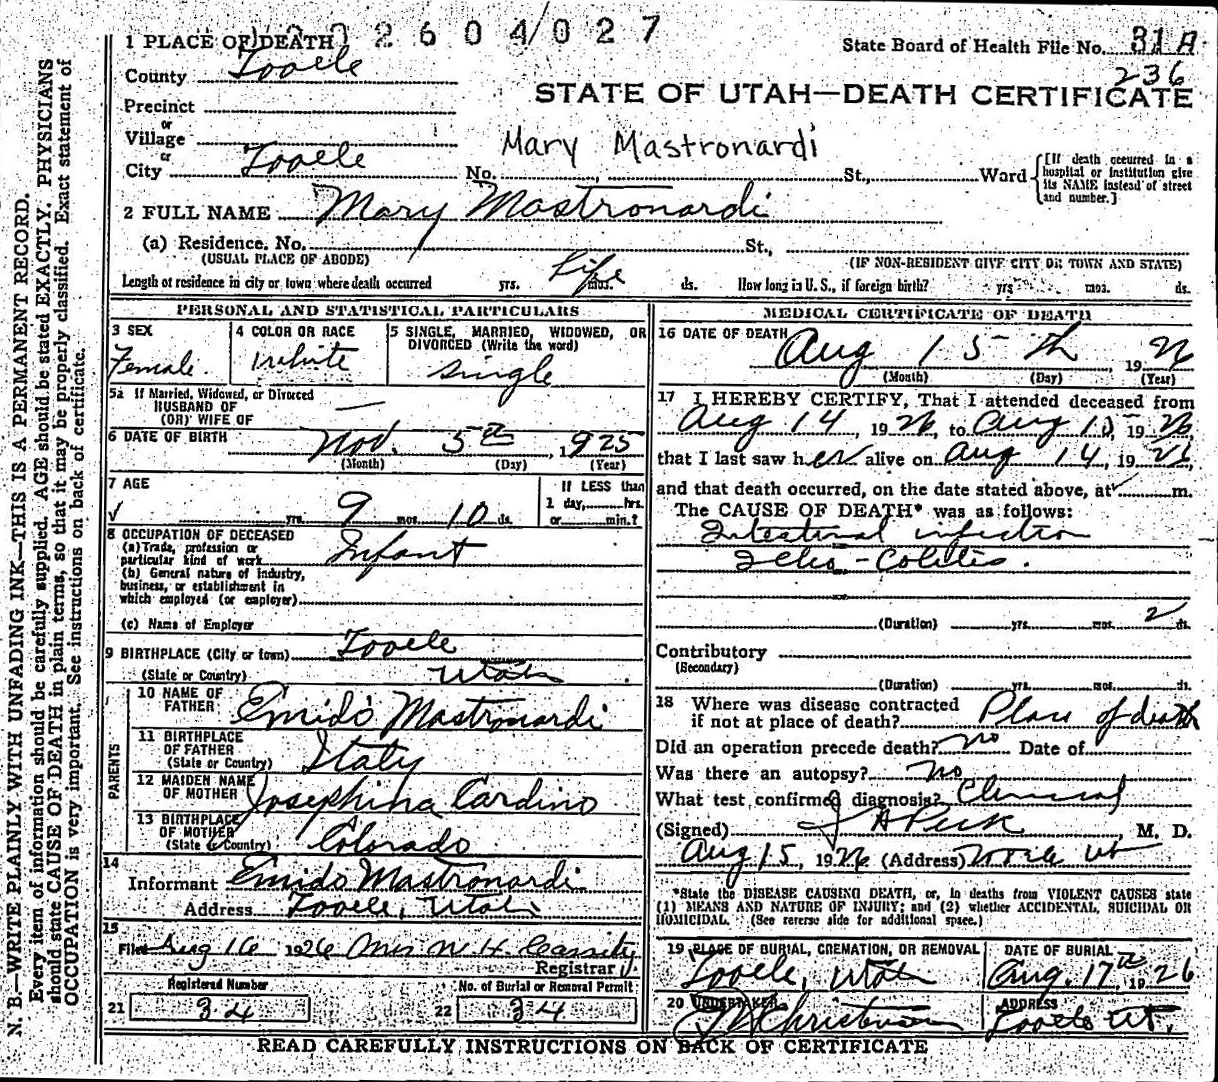 2 6 0 4/0 2 7
1 PLACE OF DEATH
State Board of Health File No. 31 A
236
County Tooele
STATE OF UTAH—DEATH CERTIFICATE
Precinct
or
Village
Mary Mastronardi
or
City Tooele No. , St., Ward {[If death occurred in a hospital or institution give its NAME instead of street and number.]
2 FULL NAME Mary Mastronardi
(a) Residence, No. St.,
(USUAL PLACE OF ABODE) (IF NON-RESIDENT GIVE CITY OR TOWN AND STATE)
Length of residence in city or town where death occurred yrs. Life mos. ds. How long in U. S., if foreign birth? yrs. mos. ds.
PERSONAL AND STATISTICAL PARTICULARS
3 SEX
Female.
4 COLOR OR RACE
White
5 SINGLE, MARRIED, WIDOWED, OR
DIVORCED (Write the word)
Single
5a If Married, Widowed, or Divorced
HUSBAND OF
(OR) WIFE OF —
6 DATE OF BIRTH Nov. 5th, 1925
(Month) (Day) (Year)
7 AGE
yrs. 9 mos. 10 ds.
If LESS than
1 day, hrs.
or min.?
8 OCCUPATION OF DECEASED
(a) Trade, profession or
particular kind of work Infant
(b) General nature of industry,
business, or establishment in
which employed (or employer)
(c) Name of Employer
9 BIRTHPLACE (City or town) Tooele
(State or Country) Utah
PARENTS
10 NAME OF
FATHER Emido Mastronardi
11 BIRTHPLACE
OF FATHER
(State or Country) Italy
12 MAIDEN NAME
OF MOTHER Josephina Cardino
13 BIRTHPLACE
OF MOTHER
(State or Country) Colorado
14
Informant Emido Mastronardi
Address Tooele, Utah
15
Filed Aug 16 1926 Mrs W. H. Cassity
Registrar
Registered Number
21 34
No. of Burial or Removal Permit
22 34
MEDICAL CERTIFICATE OF DEATH
16 DATE OF DEATH
Aug 15th 1926
(Month) (Day) (Year)
17 I HEREBY CERTIFY, That I attended deceased from
Aug 14, 1926, to Aug 15, 1926,
that I last saw her alive on Aug 14, 1926,
and that death occurred, on the date stated above, at m.
The CAUSE OF DEATH* was as follows:
Intestinal infection
Ileo-Colitis.
(Duration) yrs. mos. 2 ds.
Contributory
(Secondary)
(Duration) yrs. mos. ds.
18 Where was disease contracted
if not at place of death? Place of death
Did an operation precede death? no Date of
Was there an autopsy? no
What test confirmed diagnosis? Clinical
(Signed) J A Peck, M. D.
Aug 15, 1926 (Address) Tooele Ut
*State the DISEASE CAUSING DEATH, or, in deaths from VIOLENT CAUSES state
(1) MEANS AND NATURE OF INJURY; and (2) whether ACCIDENTAL, SUICIDAL OR
HOMICIDAL. (See reverse side for additional space.)
19 PLACE OF BURIAL, CREMATION, OR REMOVAL
Tooele, Utah
DATE OF BURIAL
Aug. 17th 1926
20 UNDERTAKER
Christensen
ADDRESS
Tooele Ut.
READ CAREFULLY INSTRUCTIONS ON BACK OF CERTIFICATE
N. B.—WRITE PLAINLY WITH UNFADING INK—THIS IS A PERMANENT RECORD.
Every item of information should be carefully supplied. AGE should be stated EXACTLY. PHYSICIANS
should state CAUSE OF DEATH in plain terms, so that it may be properly classified. Exact statement of
OCCUPATION is very important. See instructions on back of certificate.